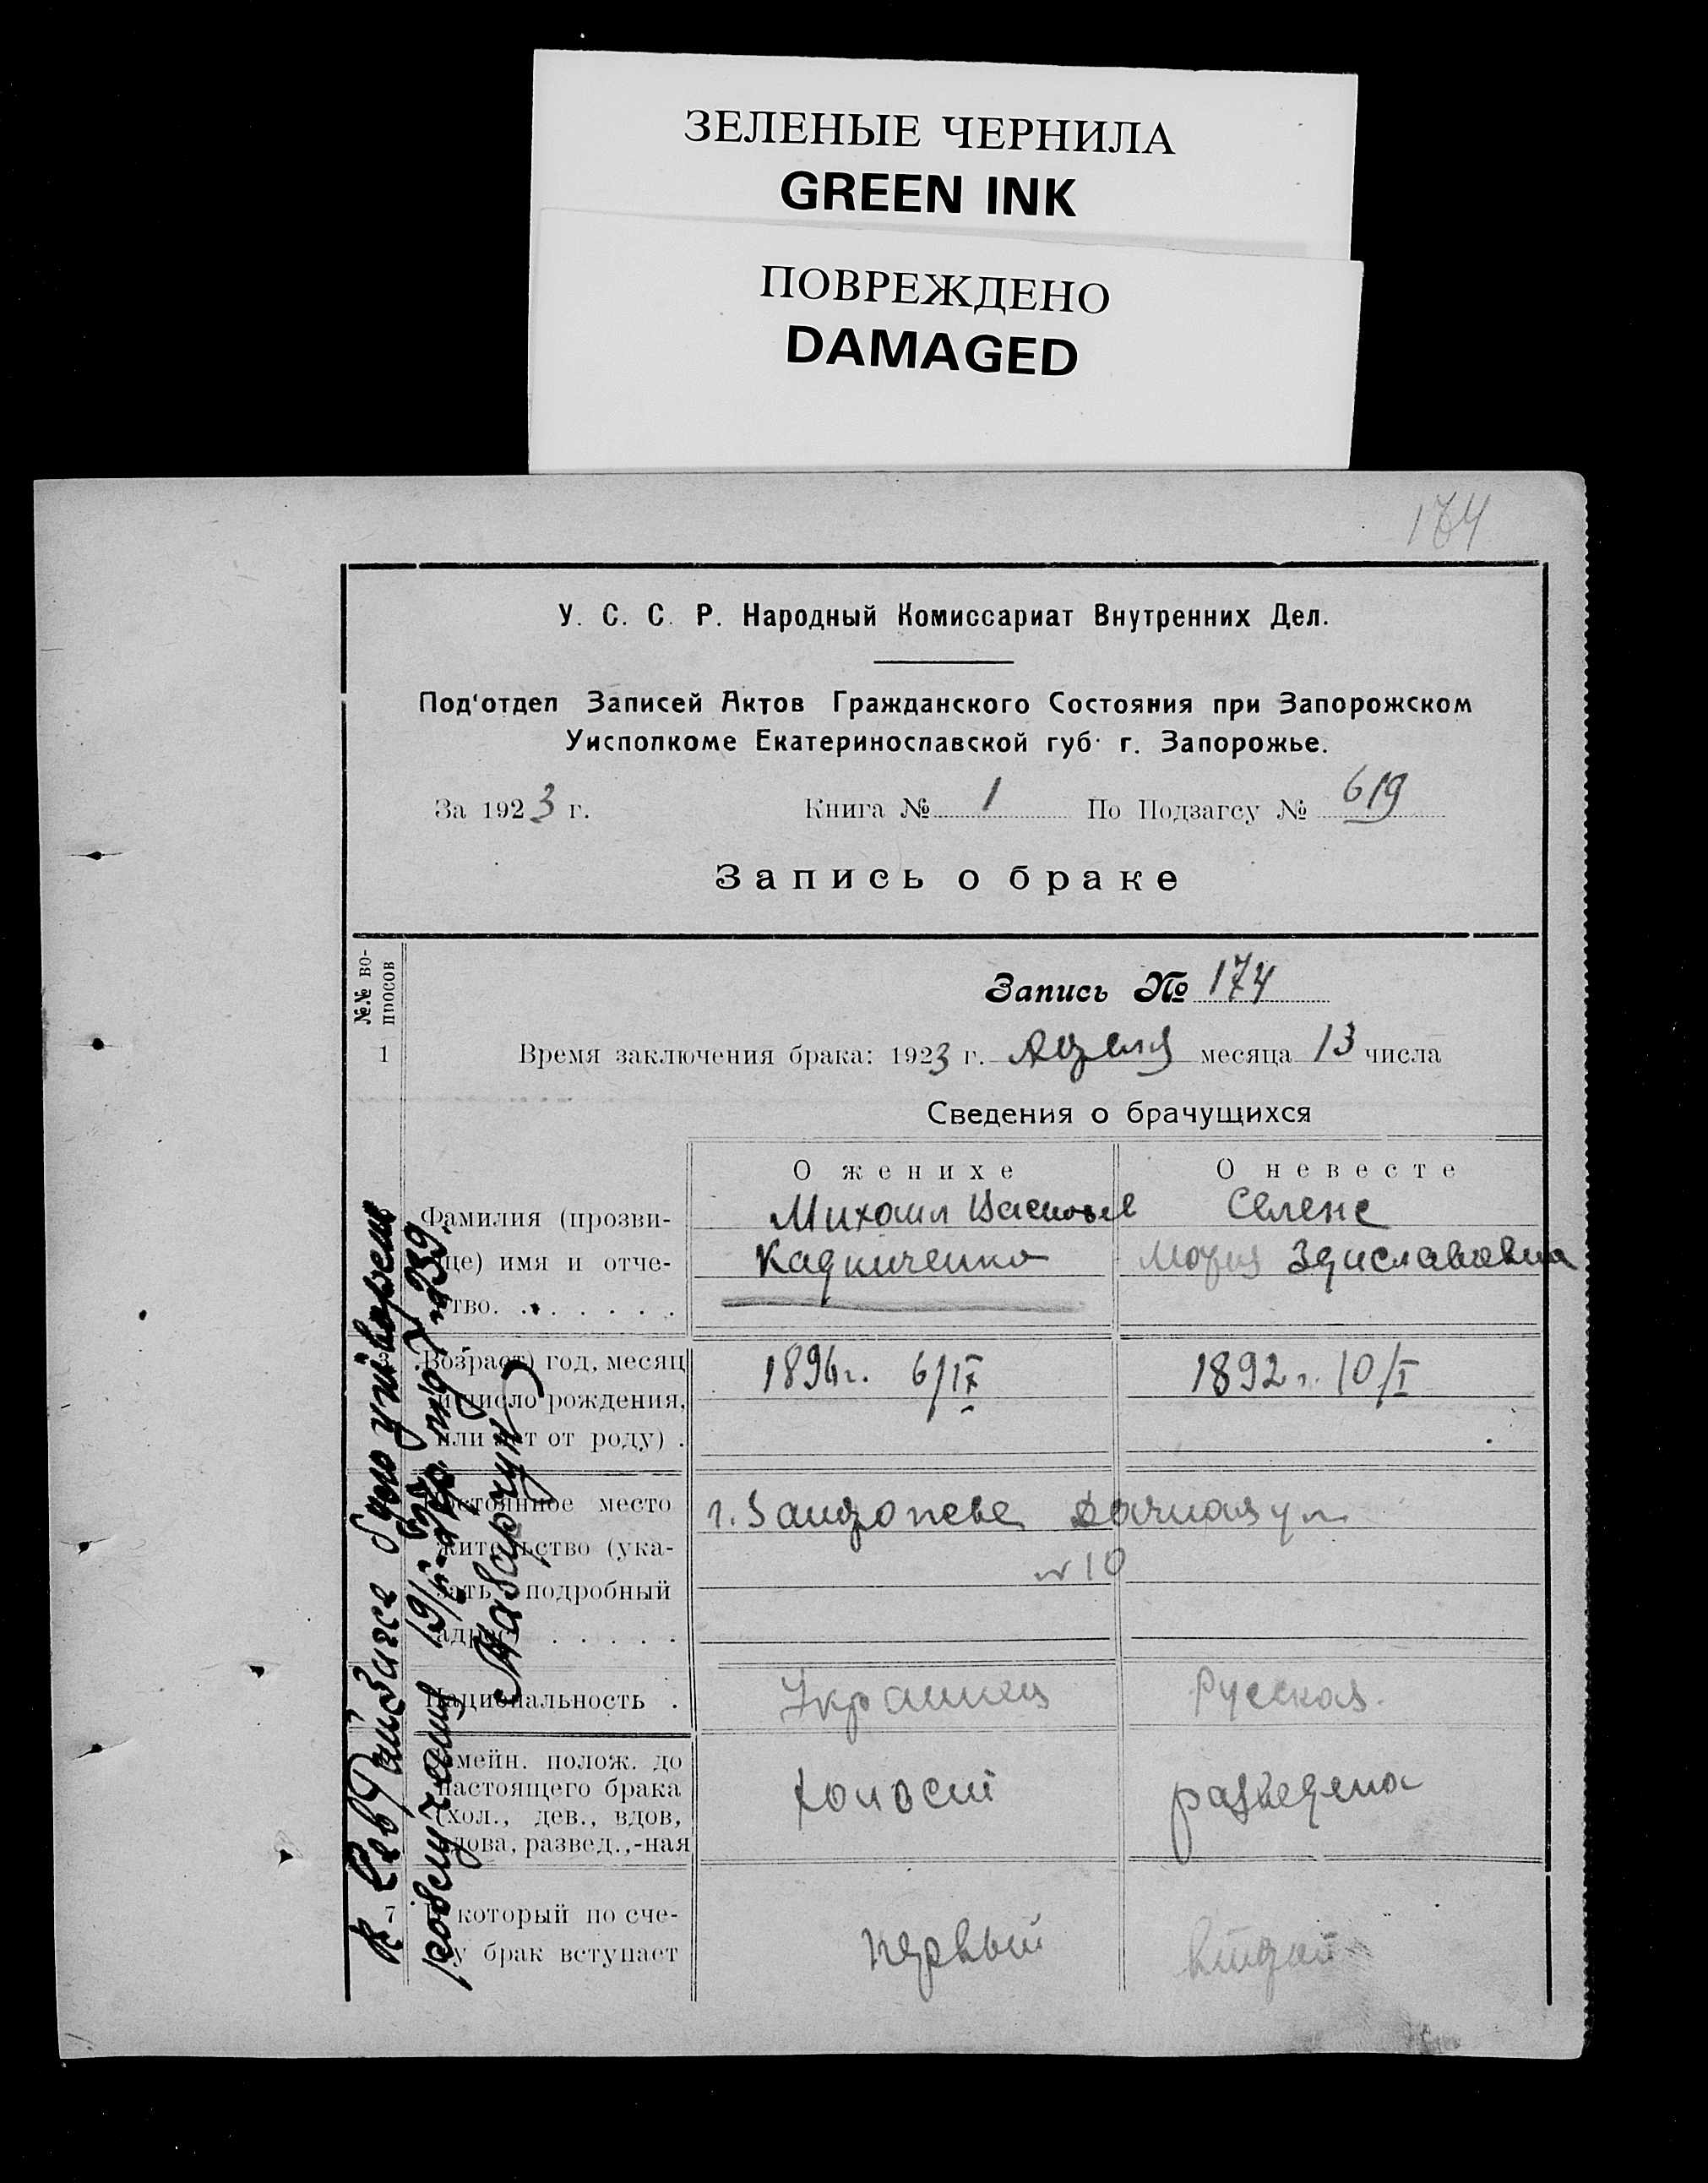 ЗЕЛЕНЫЕ ЧЕРНИЛА
GREEN INK
ПОВРЕЖДЕНО
DAMAGED
174
У. С. С. Р. Народный Комиссариат Внутренних Дел.
Под'отдел Записей Актов Гражданского Состояния при Запорожском
Уисполкоме Екатеринославской губ. г. Запорожье.
За 1923 г. Книга № 1 По Подзагсу № 619
Запись о браке
№№ во-
просов
Запись № 174
1 Время заключения брака: 1923 г. Апреля месяца 13 числа
Сведения о брачущихся
О женихе О невесте
Фамилия (прозви- Михаил Селене
ще) имя и отче- Кадниченко Мария Здиславовна
тво. . . . . . .
3 Возраст) год, месяц 1896 г. 6/IX 1892 г. 10/I
и число рождения,
или лет от роду) .
постоянное место г. Запорожье Дачная ул
жительство (ука- № 10
зать подробный
адрес) . . . . .
Национальность . Украинец Русская.
семейн. полож. до холост разведена
настоящего брака
(хол., дев., вдов,
вдова, развед.,-ная
7 который по сче- первый второй
у брак вступает